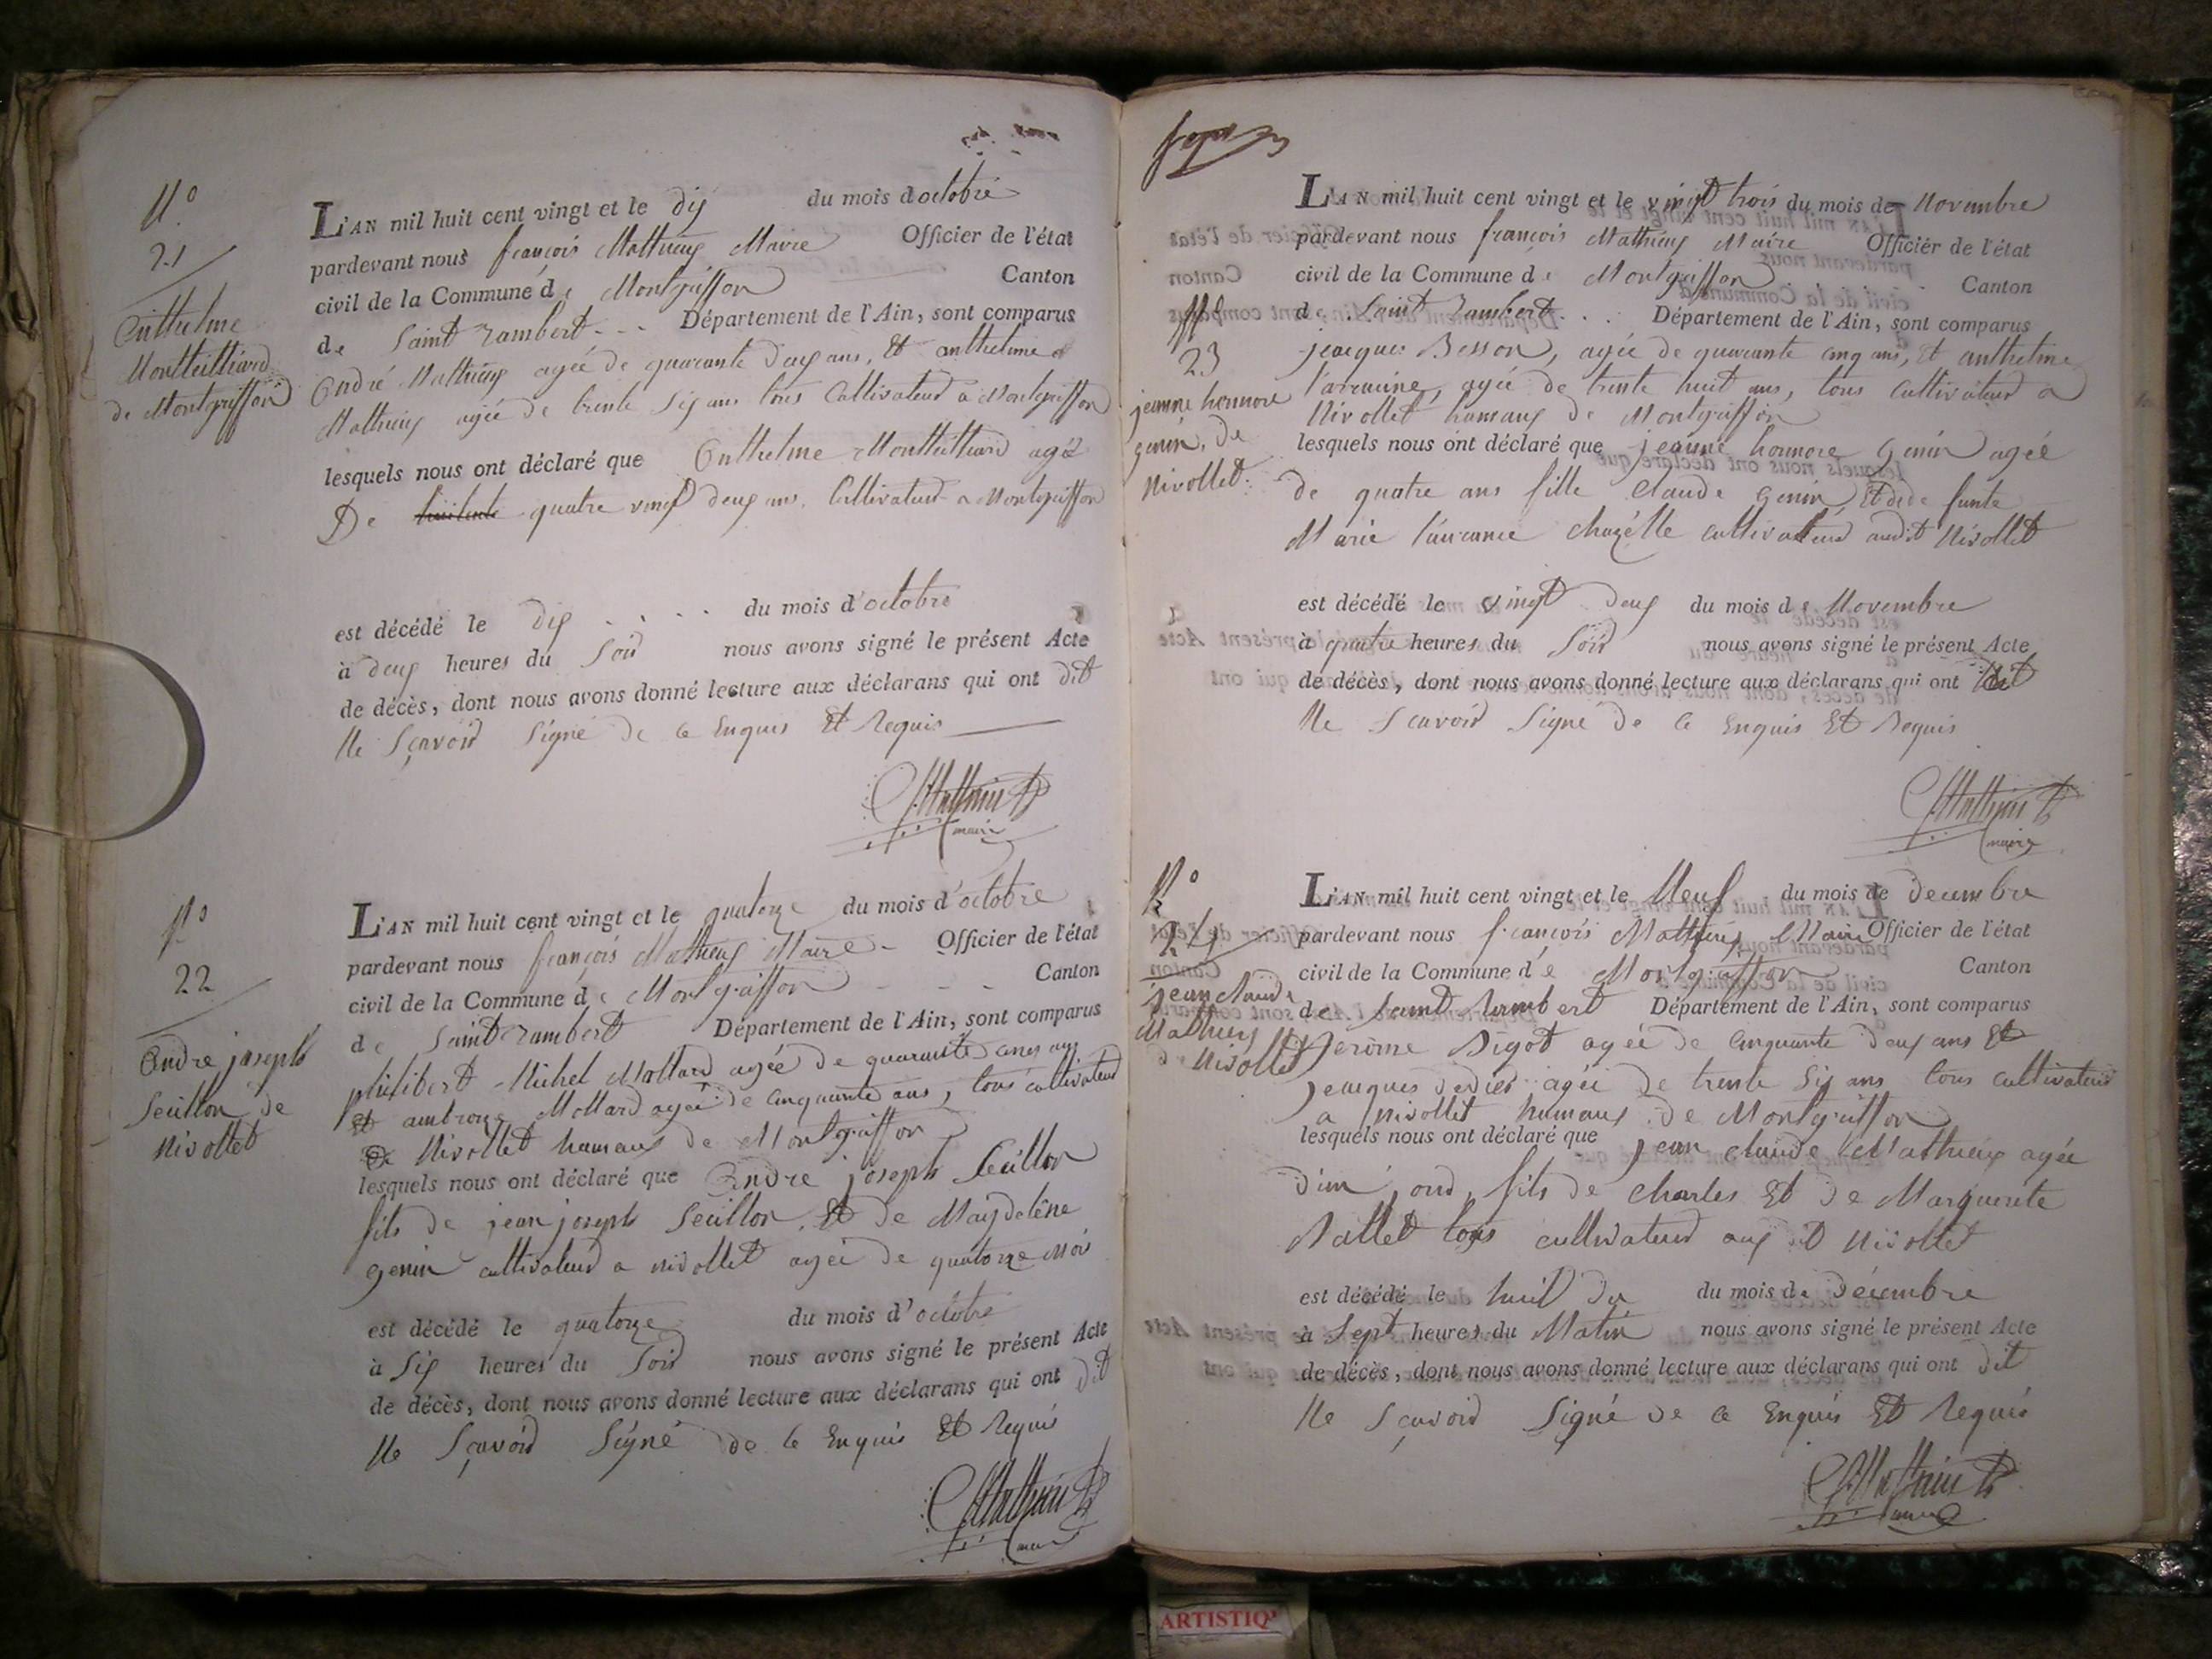 N.º
21
Enthelme
Montteilliard
de Montgriffon
L'AN mil huit cent vingt et le dix du mois d'octobre
pardevant nous françois Mathieux Maire Officier de l'état
civil de la Commune de Montgriffon Canton
de Saint rambert - - - Département de l'Ain, sont comparus
André Mathieux agée de quarante deux ans, Et anthelme
Mathieux agée de trente six ans tous Cultivateurs a Montgriffon
lesquels nous ont déclaré que Enthelme Montteilliard agé
De quatre vingt deux ans, Cultivateur a Montgriffon
est décédé le dix . . . . du mois d'octobre
à deux heures du soir nous avons signé le présent Acte
de décès, dont nous avons donné lecture aux déclarans qui ont dit
Ne Sçavoir Signé de ce Enquis Et Requis
Mathieux
maire
Nº
22
Andre joseph
Seuillon de
Nivollet
L'AN mil huit cent vingt et le quatorze du mois d'octobre
pardevant nous françois Mathieux Maire - Officier de l'état
civil de la Commune de Montgriffon - - - Canton
de Saint rambert Département de l'Ain, sont comparus
philibert Michel Mollard agée de quarante cinq ans
Et ambroise Mollard agée de cinquante ans, tous cultivateurs
de Nivollet hameaux de Montgriffon
lesquels nous ont déclaré que Andre joseph Seuillon
fils de jean joseph Seuillon, Et de Magdelêne
genin cultivateur a nivollet agée de quatorze Mois
est décédé le quatorze du mois d'octobre
à Six heures du Soir nous avons signé le présent Acte
de décès, dont nous avons donné lecture aux déclarans qui ont dit
Ne Sçavoir Signé de ce Enquis Et Requis
Mathieux
maire
23
jeanne honnore
genin, de
Nivollet
L'AN mil huit cent vingt et le vingt trois du mois de Novembre
pardevant nous françois Mathieux Maire Officier de l'état
civil de la Commune de Montgriffon Canton
de Saint rambert . . Département de l'Ain, sont comparus
jeacques Besson, agée de quarante cinq ans, Et anthelme
agée de trente huit ans, tous Cultivateur a
Nivollet hameaux de Montgriffon
lesquels nous ont déclaré que jeanne honnore Genin agée
de quatre ans fille Claude Genin Et de de funte
Marie chazelle cultivateur audit Nivollet
est décédé le vingt deux du mois de Novembre
à quatre heures du Soir nous avons signé le présent Acte
de décès, dont nous avons donné lecture aux déclarans qui ont dit
Ne Scavoir Signé de ce Enquis Et Requis
Mathieux
maire
Nº
24
jean claude
Mathieux
de Nivollet
L'AN mil huit cent vingt et le Neuf du mois de Decembre
pardevant nous françois Mathieux Maire Officier de l'état
civil de la Commune de Montgriffon Canton
de Saint Rambert Département de l'Ain, sont comparus
Jerôme Bigot agée de Cinquante deux ans Et
Jeacques agée de trente Six ans tous cultivateurs
a nivollet hameaux de Montgriffon
lesquels nous ont déclaré que jean claude Mathieux agée
d'un jour, fils de Charles Et de Marguerite
Ballet tous cultivateurs aux dit Nivollet
est décédé le huit du du mois de Décembre
à Sept heures du Matin nous avons signé le présent Acte
de décès, dont nous avons donné lecture aux déclarans qui ont dit
Ne Sçavoir Signé de ce Enquis Et Requis
Mathieux
maire
ARTISTIQ